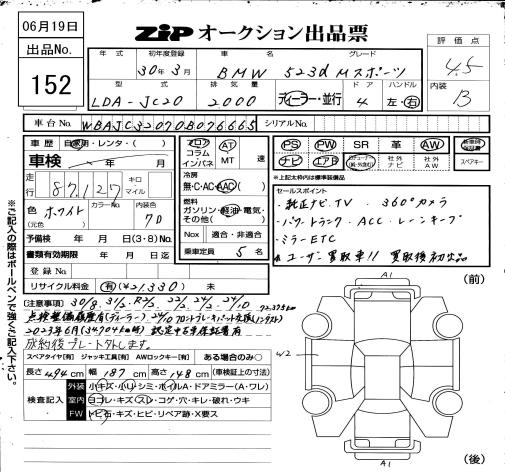 06月19日
ZIP オークション出品票
出品No.
152
年式 初年度登録 車名 グレード
30年3月 BMW 523d Mスポーツ
型式 排気量 ディーラー・並行 ドア ハンドル
LDA-JC20 2000 4 左・右
評価点
4.5
内装
B
車台No. WBAJC32070B076665 シリアルNo.
車歴 自家用・レンタ・( )
車検 年 月
走行 87,127 キロ マイル
色(元色) ホワイト カラーNo. 内装色 7D
予備検 年 月 日(3・8)No.
書類有効期限 年 月 日迄
登録No.
リサイクル料金 有(¥21,330) 未
フロア コラム インパネ AT MT 速
冷房 無・C・AC・AAC
燃料 ガソリン・軽油・電気・その他( )
Nox 適合・非適合
乗車定員 5名
PS PW SR 革 AW
ナビ エアB 社外ナビ 社外AW スペアキー
※上記太わく内は標準装備品
セールスポイント
・純正ナビTV ・360°カメラ
・パワートランク ・ACC ・レーンキープ
・ミラーETC
★ユーザー買取車!! 買取後初出品
※ご記入の際はボールペンで強くご記入下さい。
[注意事項]
点検整備履歴有(ディーラー)
2023年6月(34,704km時)認定中古車保証書有
成約後プレート外します。
スペアタイヤ[有] ジャッキ工具[有] AWロックキー[有] ある場合のみ○
長さ494cm 幅187cm 高さ148cm (車検証上の寸法)
検査記入
外装 小キズ・小凹・シミ・ホイルA・ドアミラー(A・ワレ)
室内 ヨゴレ・キズ・スレ・コゲ・穴・キレ・破れ・ウキ
FW トビ石・キズ・ヒビ・リペア跡・X要ス
A1
(前)
W2
A1
(後)